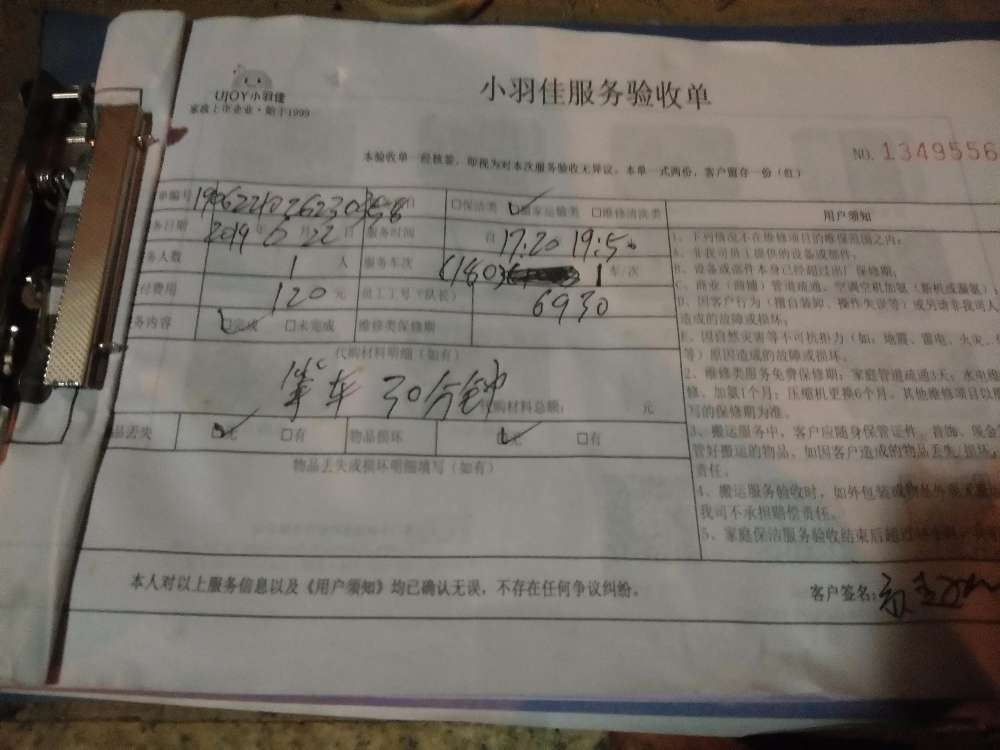 UJOY小羽佳
家政上市企业·始于1999
小羽佳服务验收单
NO. 1349556
本验收单一经核签，即视为对本次服务验收无异议，本单一式两份，客户留存一份（红）
单编号
□保洁类 ☑搬家运输类 □维修清洗类
用户须知
务日期 2019年6月22日 服务时间 自 17:20 19:50
务人数 1 人 服务车次 1 车/次
付费用 120 元 员工工号（队长） 6930
务内容 ☑完成 □未完成 维修类保修期
代购材料明细（如有）
车 30分钟
代购材料总额： 元
品丢失 ☑无 □有 物品损坏 ☑无 □有
物品丢失或损坏明细填写（如有）
1、下列情况不在维修项目的维保范围之内：
A、非我司员工提供的设备或部件。
B、设备或部件本身已经超过出厂保修期；
C、商业（商铺）管道疏通、空调空机加氨（新机或漏氨）
D、因客户行为（擅自装卸、操作失误等）或另请非我司人
造成的故障或损坏；
E、因自然灾害等不可抗拒力（如：地震、雷电、火灾、
等）原因造成的故障或损坏。
2、维修类服务免费保修期：家庭管道疏通3天；水电维
修、加氨1个月；压缩机更换6个月。其他维修项目以
写的保修期为准。
3、搬运服务中，客户应随身保管证件、首饰、现金
管好搬运的物品。如因客户造成的物品丢失/损坏，
责任。
4、搬运服务验收时，如外包装或物
我司不承担赔偿责任。
5、家庭保洁服务验收结束后超过
本人对以上服务信息以及《用户须知》均已确认无误，不存在任何争议纠纷。
客户签名：